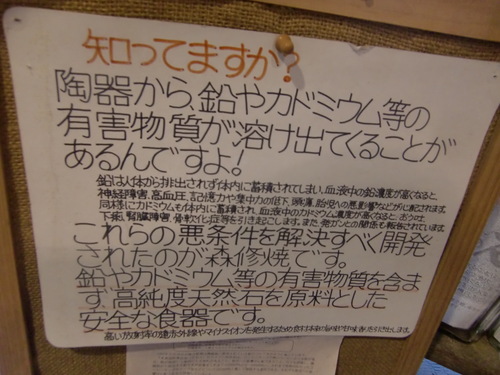 知ってますか?
「陶器から、鉛やカドミウム等の
有害物質が溶け出てくることが
あるんですよ!
鉛は人体から排出されず体内に蓄積されてしまい、血液中の鉛濃度が高くなると、
神経障害、高血圧、記憶力や集中力の低下、頭痛、胎児への悪影響などが心配されます。
同様にカドミウムも体内に蓄積され、血液中のカドミウム濃度が高くなると、おう吐、
下痢、腎臓障害、骨軟化症等を引き起こします。また、発ガンとの関係も報告されています。
これらの悪条件を解決すべく開発
されたのが森修焼です。
鉛やカドミウム、等の有害物質を含ま
ず、高純度天然石を原料とした
安全な食器です。
高い放射率の遠赤外線やマイナスイオンを発生するため食材本来の